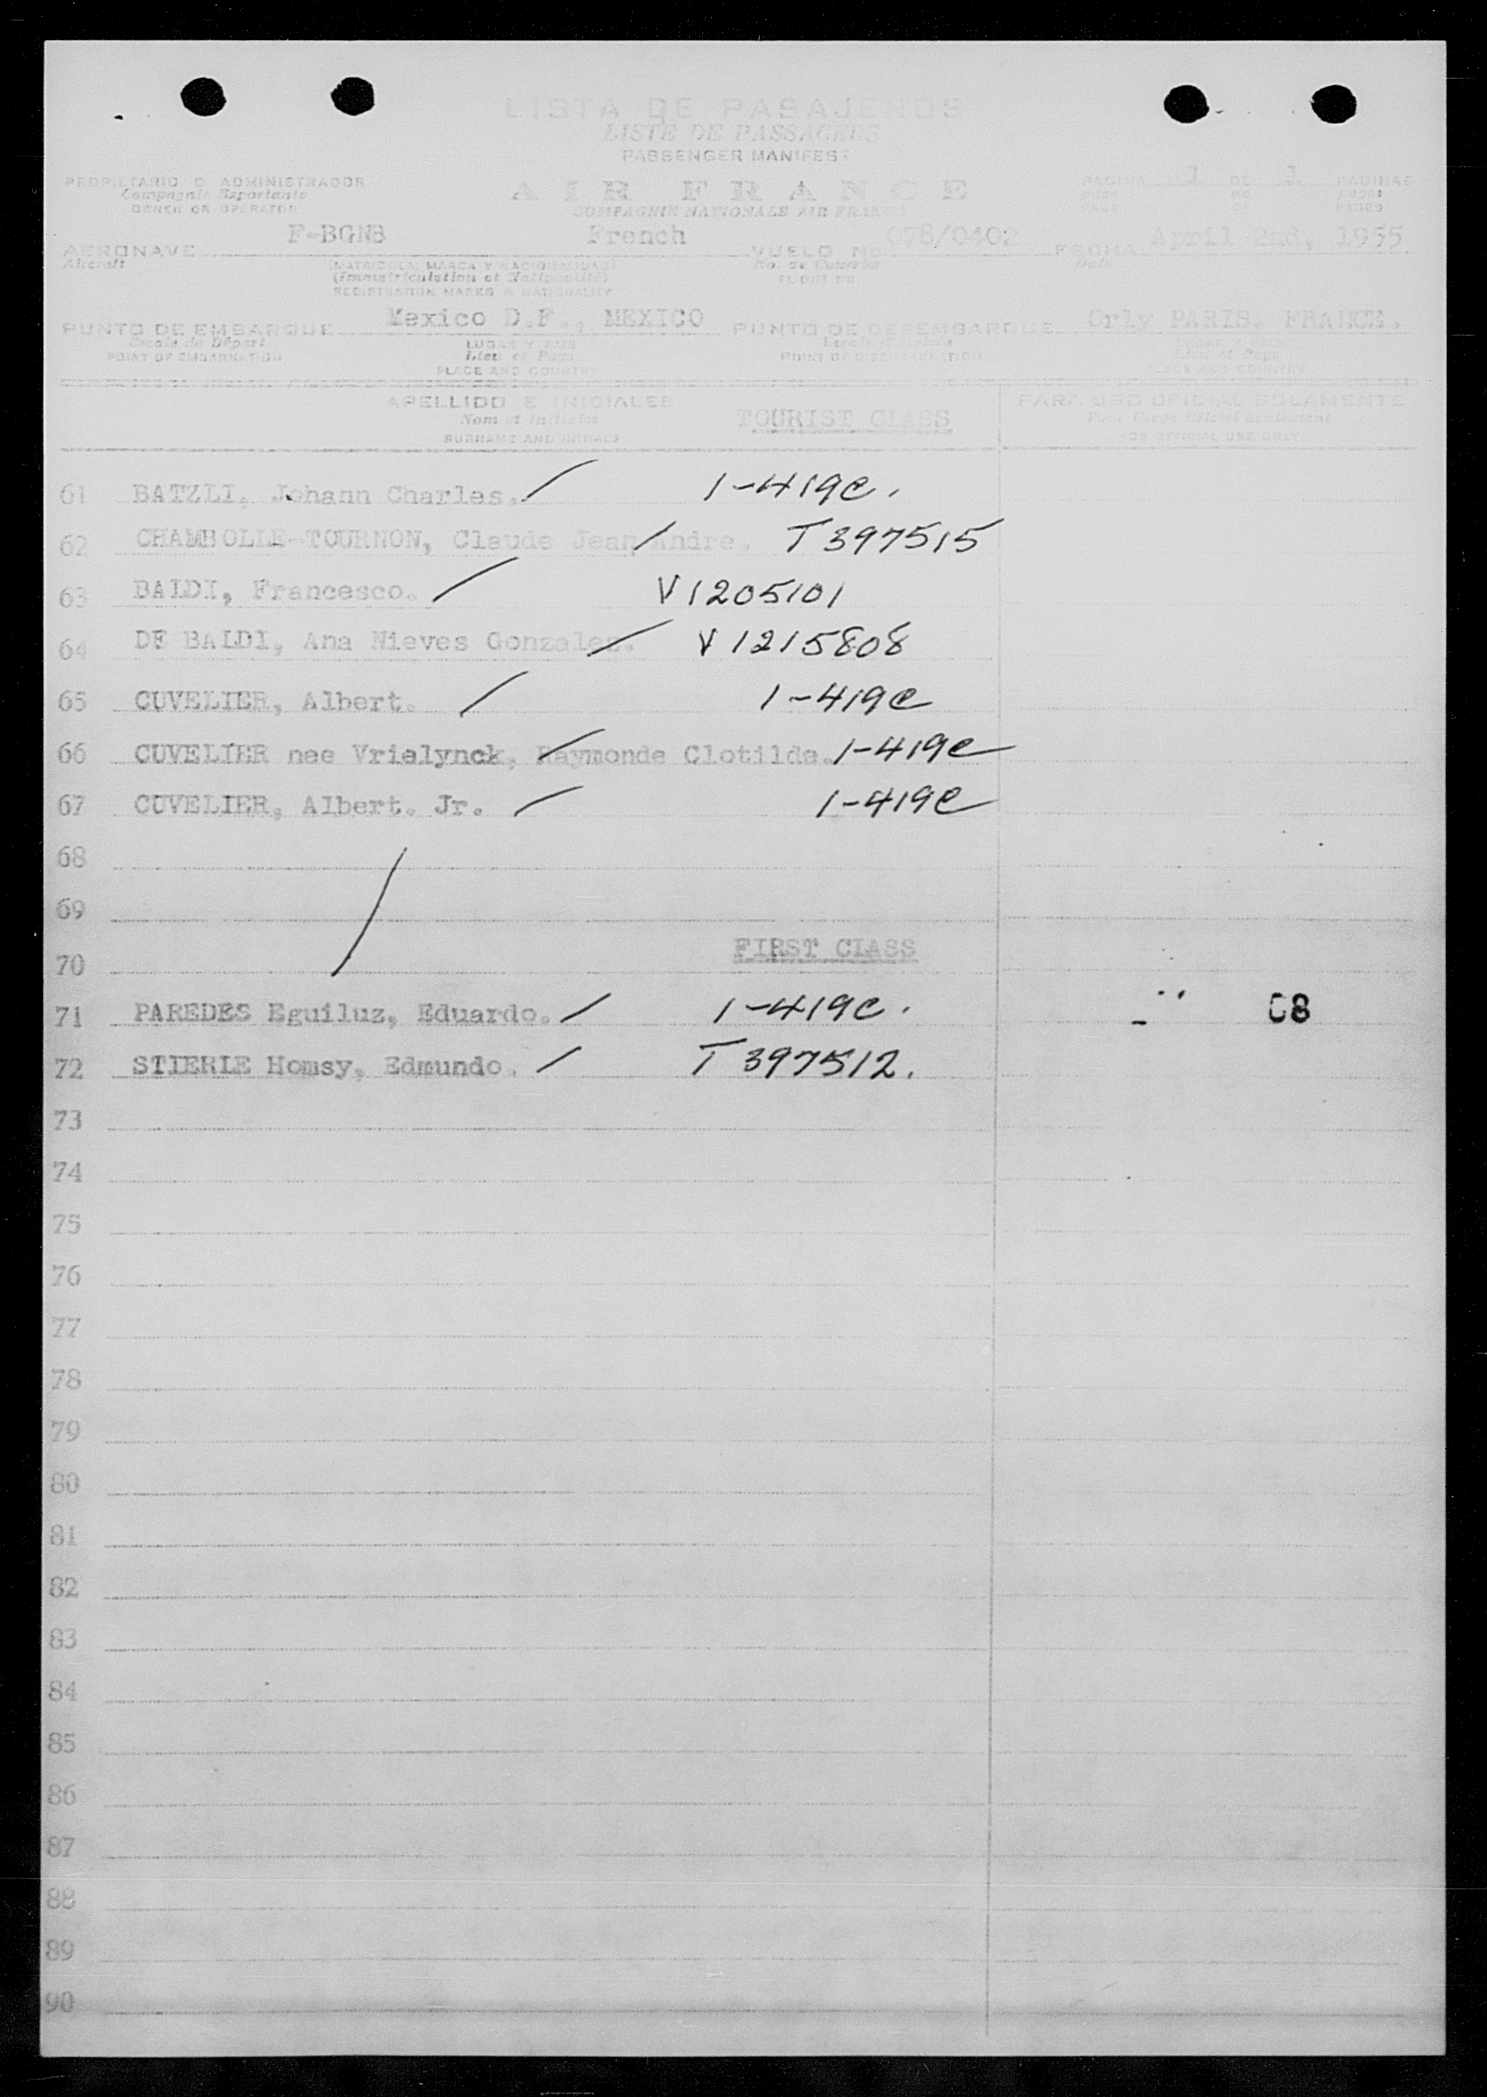 LISTA DE PASAJEROS
LISTE DE PASSAGERS
PASSENGER MANIFEST
PROPIETARIO O ADMINISTRADOR
Compagnie Exportante
OWNER OR OPERATOR
AIR FRANCE
COMPAGNIE NATIONALE AIR FRANCE
PAGINA 1 DE 1 PAGINAS
PAGE
PAGE OF PAGES
AERONAVE F-BGNB French VUELO No 078/0402 FECHA April 2nd, 1955
Aircraft (MATRICULA, MARCA Y NACIONALIDAD) No. de Courrier Date
(Immatriculation et Nationalité) FLIGHT No
REGISTRATION MARKS & NATIONALITY
PUNTO DE EMBARQUE Mexico D.F., MEXICO PUNTO DE DESEMBARQUE Orly PARIS, FRANCE.
Escale de Départ LUGAR Y PAIS
POINT OF EMBARKATION Lieu et Pays POINT OF DISEMBARKATION Lieu et Pays
PLACE AND COUNTRY PLACE AND COUNTRY
APELLIDO E INICIALES TOURIST CLASS PARA USO OFICIAL SOLAMENTE
Nom et Initiales
SURNAME AND INITIALS FOR OFFICIAL USE ONLY
61 BATZLI, Johann Charles. / 1-419c.
62 CHAMBOLLE-TOURNON, Claude Jean / Andre. T397515
63 BALDI, Francesco. / V1205101
64 DE BALDI, Ana Nieves Gonzalez. / V1215808
65 CUVELIER, Albert. / 1-419c
66 CUVELIER nee Vrielynck, Raymonde Clotilde. 1-419c
67 CUVELIER, Albert. Jr. / 1-419c
68
69
FIRST CLASS
70
71 PAREDES Eguiluz, Eduardo. / 1-419c. 08
72 STIERLE Homsy, Edmundo. / T397512.
73
74
75
76
77
78
79
80
81
82
83
84
85
86
87
88
89
90